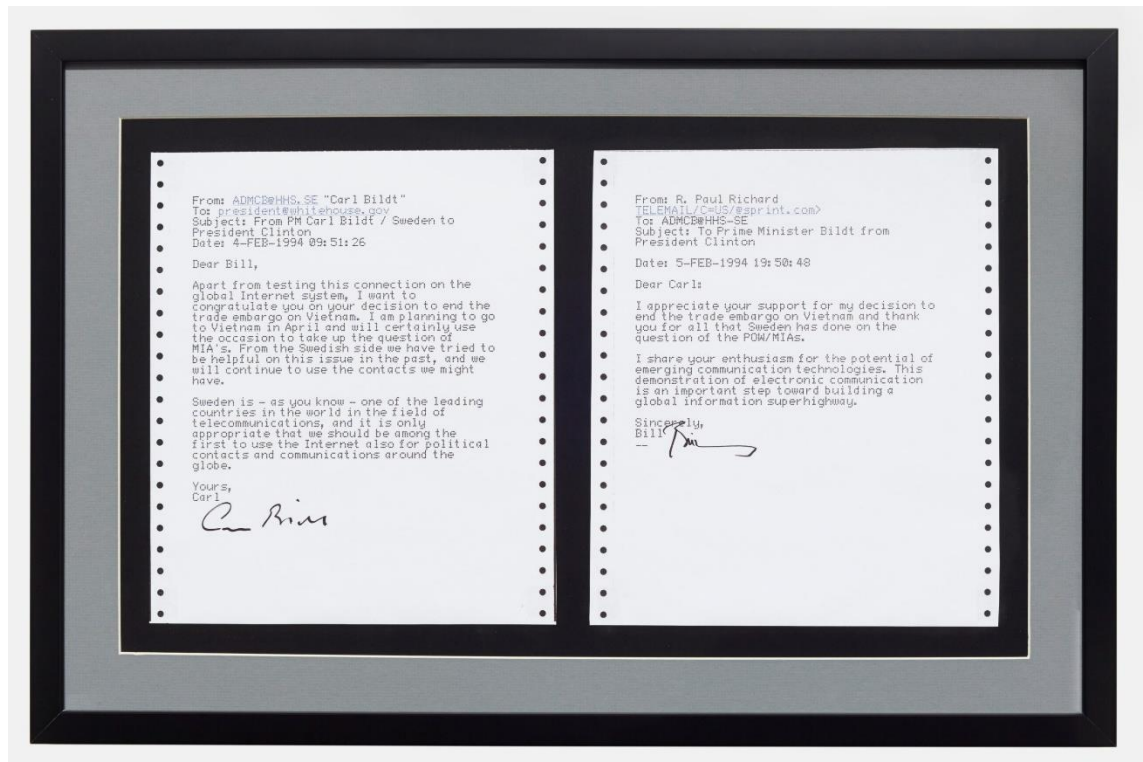 From: ADMCB@HHS.SE "Carl Bildt"
To: president@whitehouse.gov
Subject: From PM Carl Bildt / Sweden to
President Clinton
Date: 4-FEB-1994 09:51:26
Dear Bill,
Apart from testing this connection on the
global Internet system, I want to
congratulate you on your decision to end the
trade embargo on Vietnam. I am planning to go
to Vietnam in April and will certainly use
the occasion to take up the question of
MIA's. From the Swedish side we have tried to
be helpful on this issue in the past, and we
will continue to use the contacts we might
have.
Sweden is - as you know - one of the leading
countries in the world in the field of
telecommunications, and it is only
appropriate that we should be among the
first to use the Internet also for political
contacts and communications around the
globe.
Yours,
Carl
Carl Bildt
From: R. Paul Richard
TELEMAIL/C=US/@sprint.com>
To: ADMCB@HHS-SE
Subject: To Prime Minister Bildt from
President Clinton
Date: 5-FEB-1994 19:50:48
Dear Carl:
I appreciate your support for my decision to
end the trade embargo on Vietnam and thank
you for all that Sweden has done on the
question of the POW/MIAs.
I share your enthusiasm for the potential of
emerging communication technologies. This
demonstration of electronic communication
is an important step toward building a
global information superhighway.
Sincerely,
Bill
Bill
--